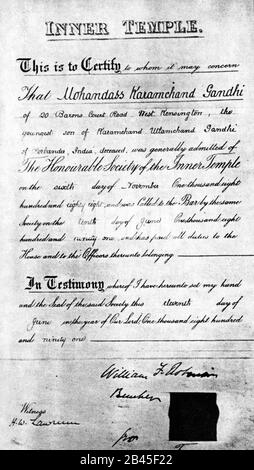 INNER TEMPLE.
This is to Certify to whom it may concern
That Mohandass Karamchand Gandhi
of 20 Barons Court Road West Kensington, the
youngest son of Karamchand Uttamchand Gandhi
of Porbandar, India, deceased, was generally admitted of
The Honourable Society of the Inner Temple
on the sixth day of November One thousand eight
hundred and eighty eight, and was Called to the Bar by the same
Society on the tenth day of June One thousand eight
hundred and ninety one, and has paid all duties to the
House and to the Officers thereunto belonging
In Testimony whereof I have hereunto set my hand
and the Seal of the said Society this eleventh day of
June in the year of Our Lord One thousand eight hundred
and ninety one.
William F. Robinson
Bencher
Witness
H.W. Lawrence
for
a alamy
Image ID: 2B45F22
www.alamy.com